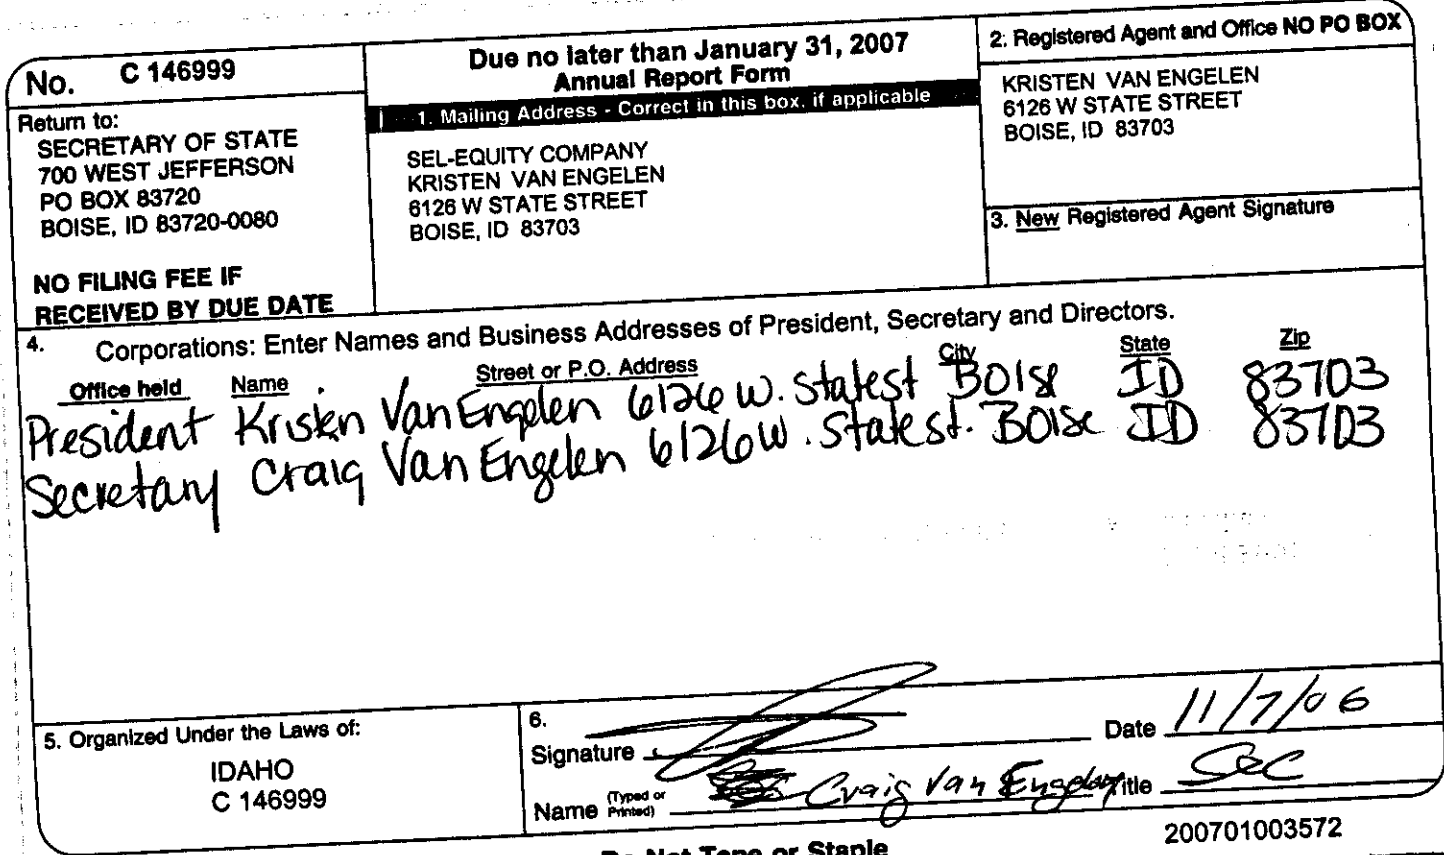 No. C 146999
Return to:
SECRETARY OF STATE
700 WEST JEFFERSON
PO BOX 83720
BOISE, ID 83720-0080
NO FILING FEE IF
RECEIVED BY DUE DATE
Due no later than January 31, 2007
Annual Report Form
1. Mailing Address - Correct in this box, if applicable
SEL-EQUITY COMPANY
KRISTEN VAN ENGELEN
6126 W STATE STREET
BOISE, ID 83703
2: Registered Agent and Office NO PO BOX
KRISTEN VAN ENGELEN
6126 W STATE STREET
BOISE, ID 83703
3. New Registered Agent Signature
4. Corporations: Enter Names and Business Addresses of President, Secretary and Directors.
Office held Name Street or P.O. Address City State Zip
President Kristen Van Engelen 6126 W. State st Boise ID 83703
Secretary Craig Van Engelen 6126 W. State st. Boise ID 83703
5. Organized Under the Laws of:
IDAHO
C 146999
6.
Signature Date 11/7/06
Name (Typed or Printed) Craig Van Engelen Title Sec
200701003572
Do Not Tape or Staple